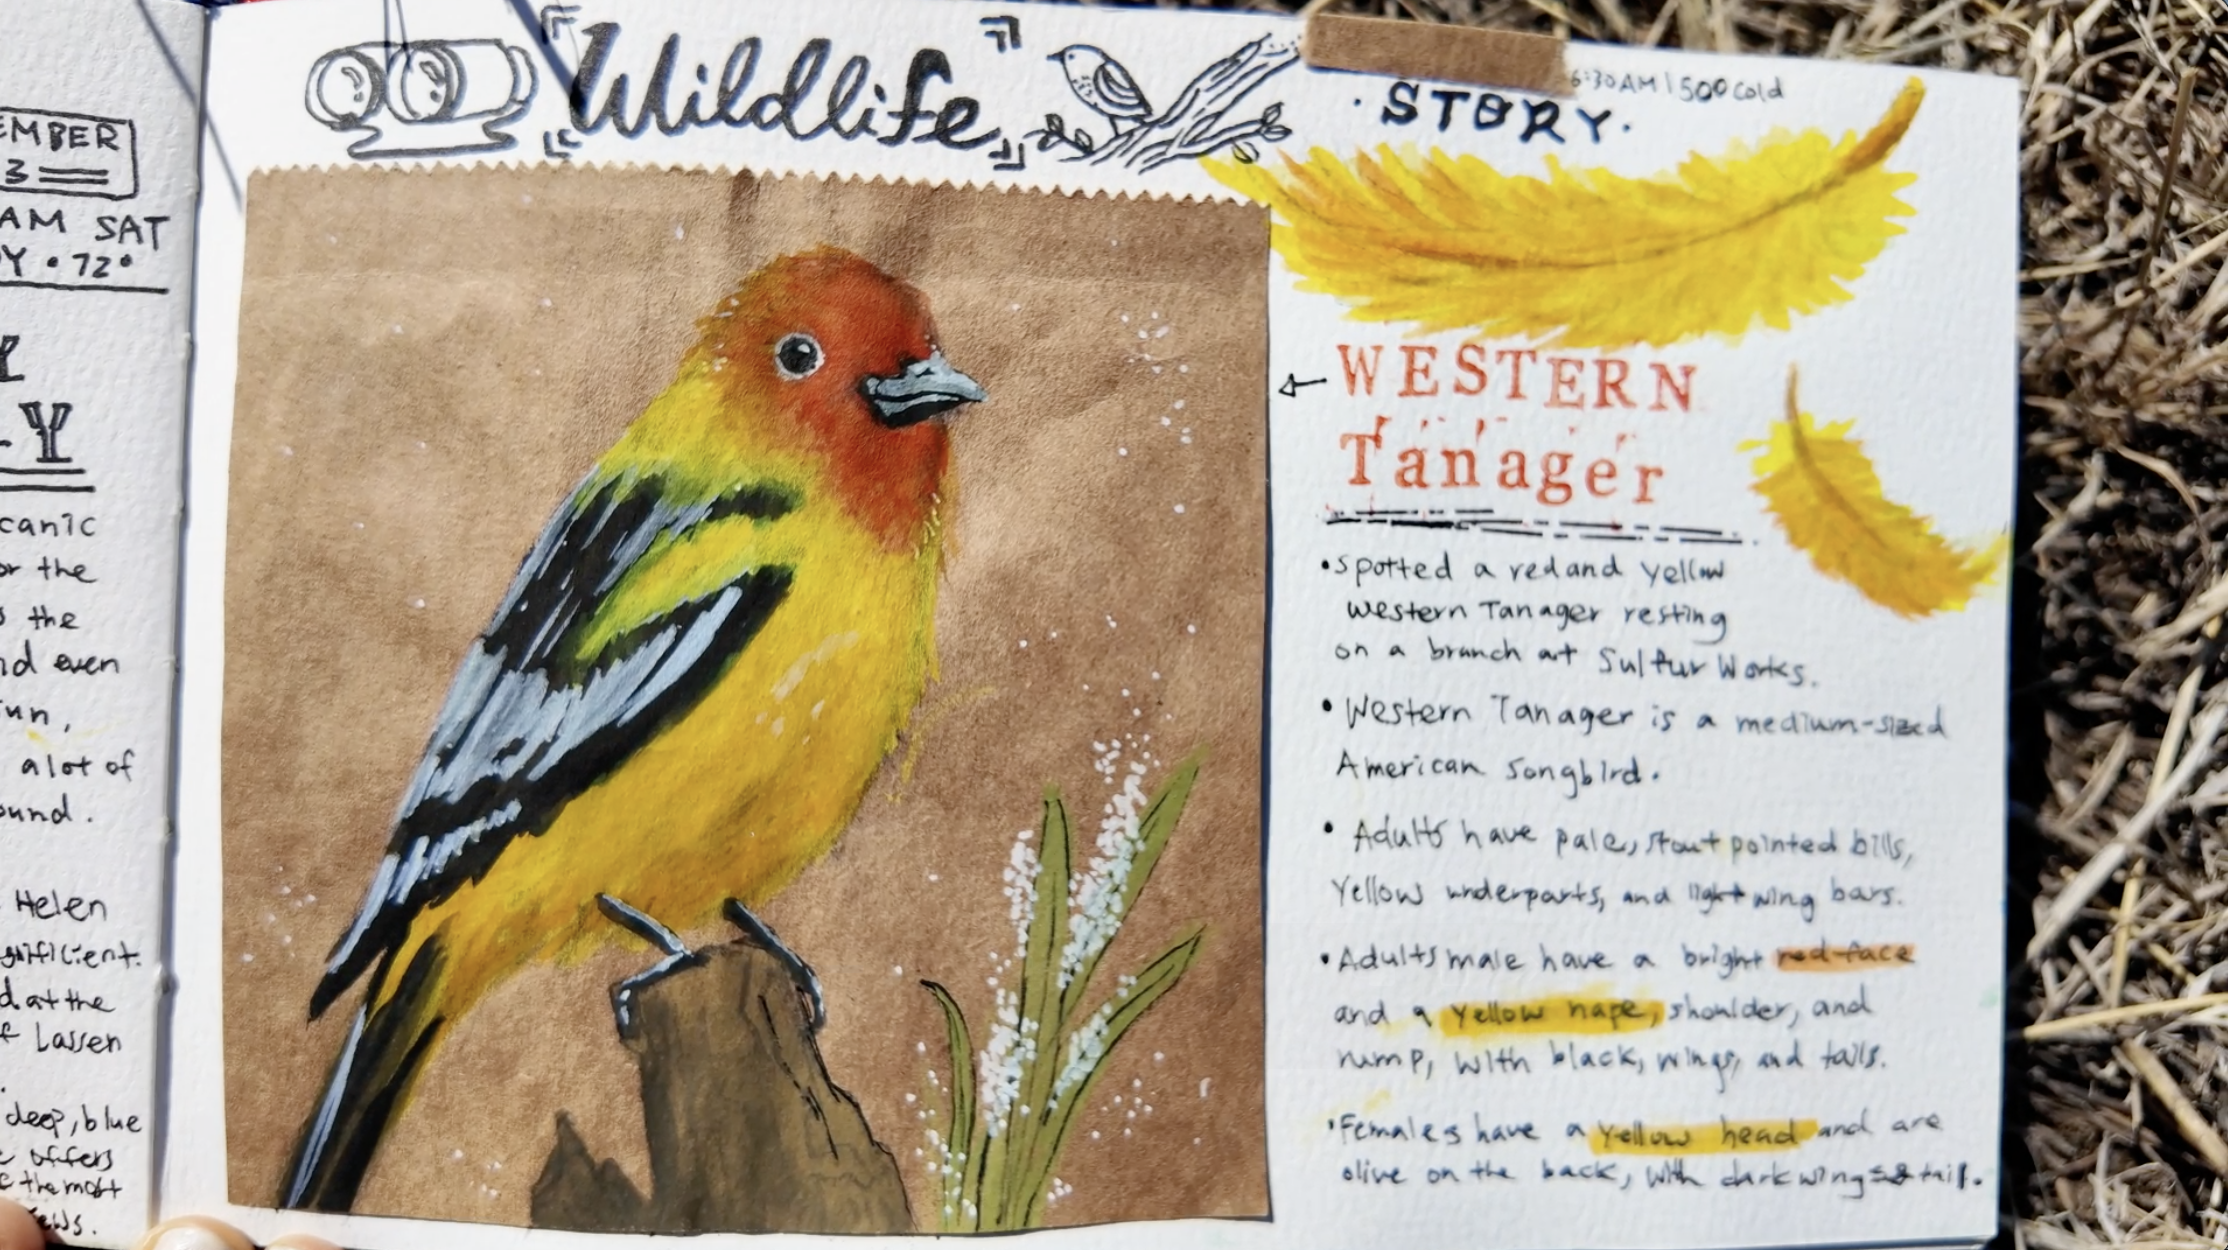 EMBER
3
AM SAT
Y • 72°
Y
LY
canic
or the
the
nd even
fun,
a lot of
ound.
Helen
gnificient.
d at the
of Lassen
deep, blue
offers
the most
Wildlife
6:30AM | 500 Cold
• STORY •
WESTERN
Tanager
• Spotted a red and yellow
western Tanager resting
on a branch at Sulfur Works.
• Western Tanager is a medium-sized
American Songbird.
• Adults have pale, stout pointed bills,
Yellow underparts, and light wing bars.
• Adults male have a bright red-face
and a yellow nape, shoulder, and
rump, with black, wings, and tails.
• Females have a yellow head and are
olive on the back, with dark wings & tail.